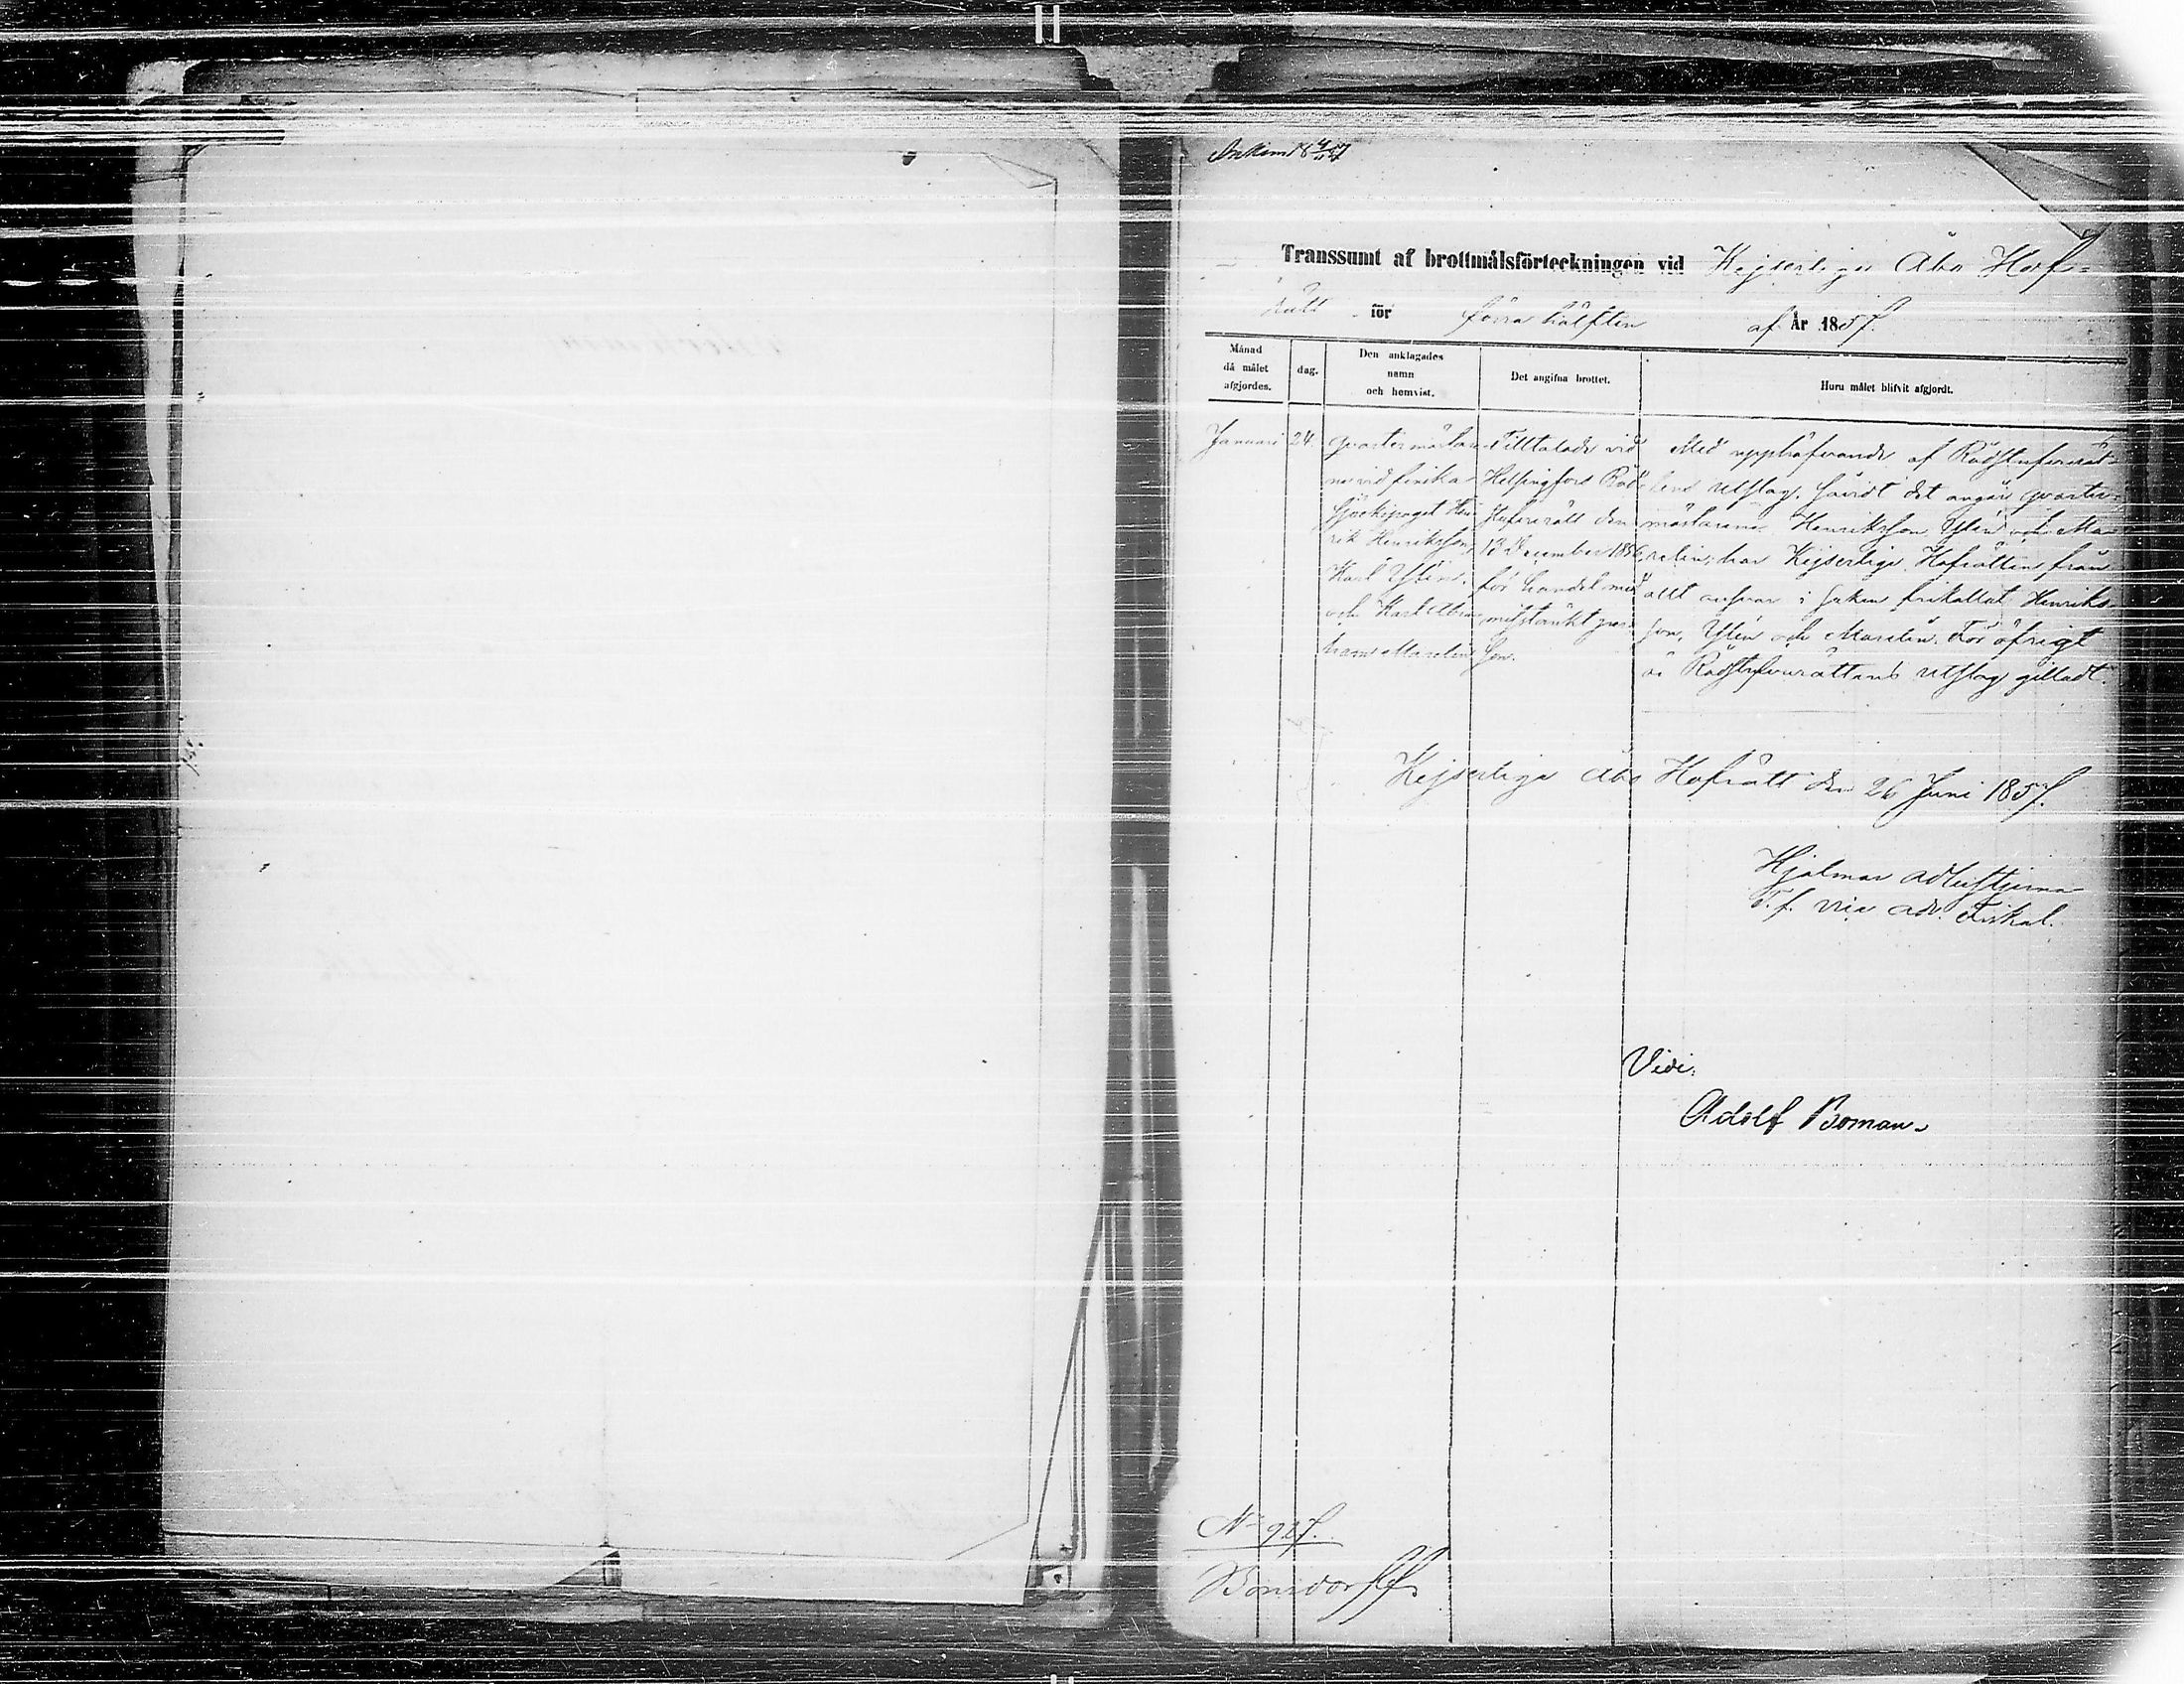 Transsumt af brottmålsförteckningen vid Kejserliga Åbo Hof=
rätt för förra hälften af År 1857.
Månad
då målet
afgjordes.
dag.
Den anklagades
namn
och hemvist.
Det angifna brottet.
Huru målet blifvit afgjordt.
Januari
24.
qvartermästar-
ne vid finska
Sjöekipaget Hen-
rik Henriksson,
Karl Ylén
och Karl Abra-
ham Marelin
Tilltalade vid
Helsingfors Råd-
stufvurätt den
13 December 1856
för handel med
misstänkt per-
son.
Med upphäfvande af Rådstufvurät-
tens utslag, såvidt det angår qvarter-
mästarene Henriksson, Ylén och Ma-
relin, har Kejserliga Hofrätten från
allt ansvar i saken frikallat Henriks-
son, Ylén och Marelin. För öfrigt
är Rådstufvurättens utslag gilladt.
Kejserliga Åbo Hofrätt den 26 Juni 1857.
Hjalmar Adlerstjerna
T. f. vice adv. Fiskal.
Vidi,
Adolf Boman.
N:o 927.
Bonsdorff